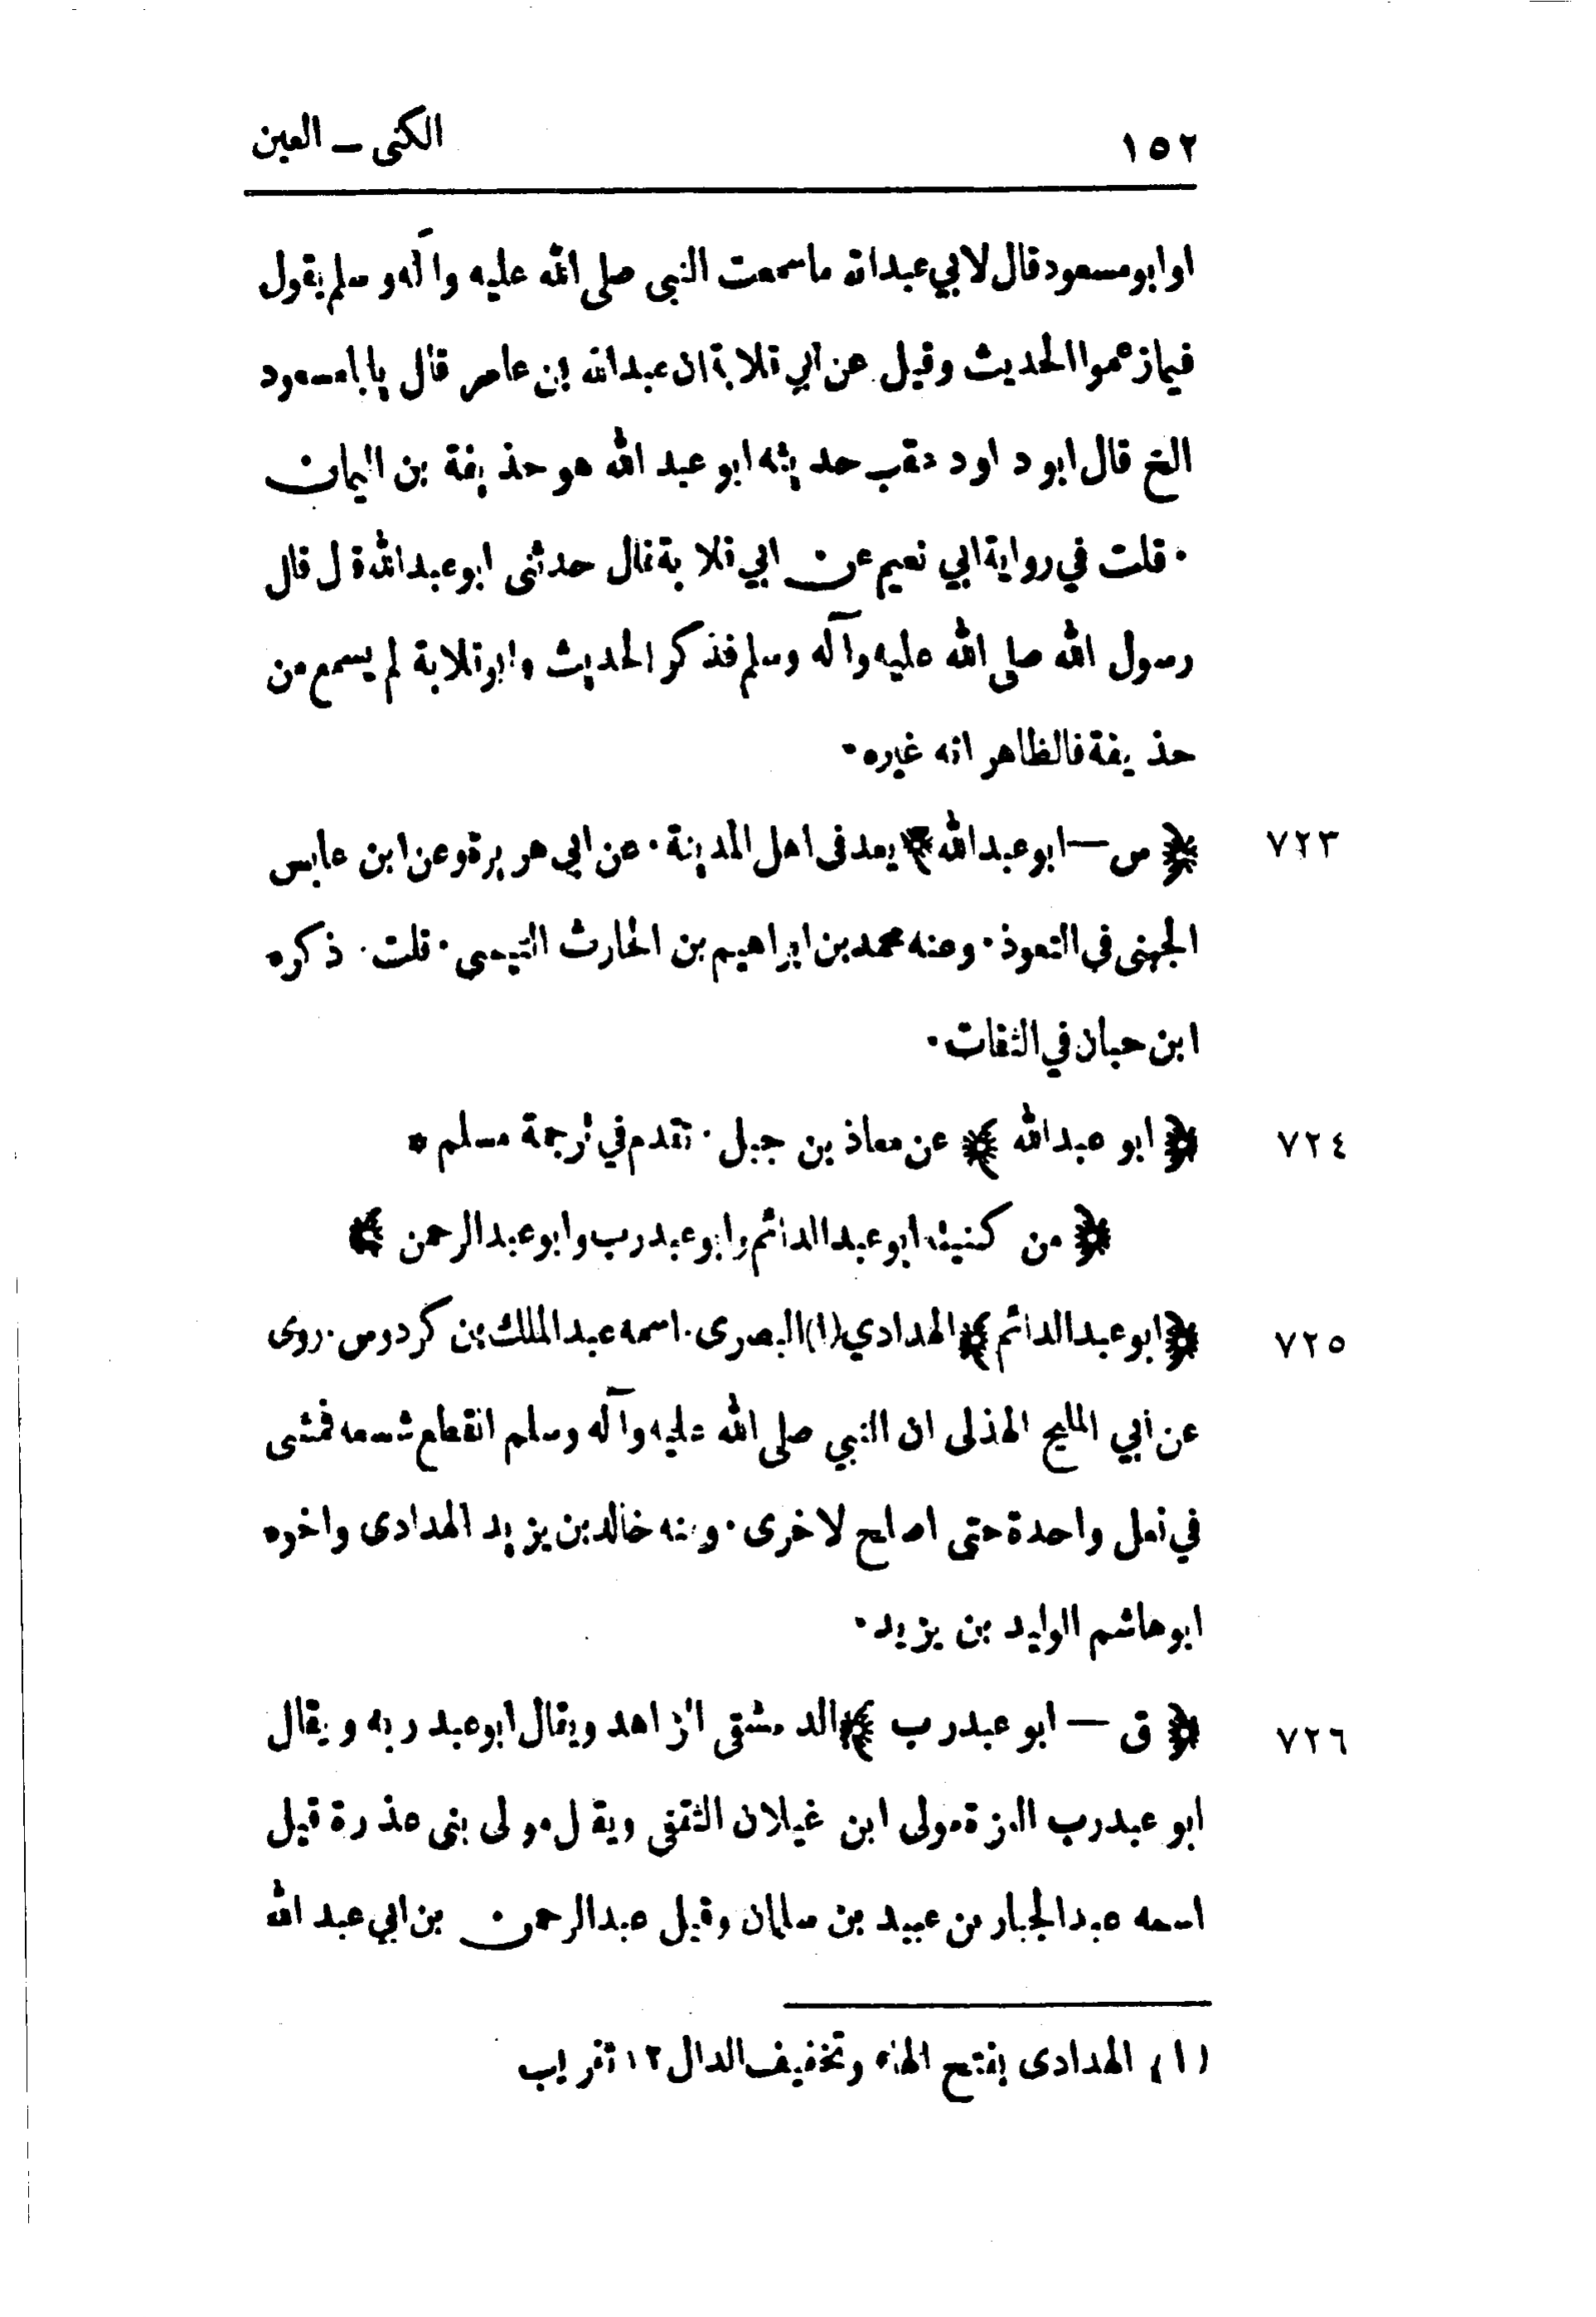 ١٥٢
الكنى ــ العين
او ابو مسعود قال لابي عبدالله ما سمعت النبي صلى الله عليه وآله وسلم يقول
فيما زعموا الحديث وقيل عن ابي قلابة ان عبدالله بن عامر قال يا ابا مسعود
الخ قال ابو داود عقب حديثه ابو عبد الله هو حذيفة بن اليمان
· قلت في رواية ابي نعيم عن ابي قلابة قال حدثنى ابو عبدالله قال قال
رسول الله صلى الله عليه وآله وسلم فذكر الحديث وابو قلابة لم يسمع من
حذيفة فالظاهر انه غيره ·
٧٢٣
﴿ س — ابو عبدالله ﴾ يعد فى اهل المدينة · عن ابي هريرة وعن ابن عابس
الجهنى في التعوذ · وعنه محمد بن ابراهيم بن الحارث التيمى · قلت · ذكره
ابن حبان في الثقات ·
٧٢٤
﴿ ابو عبدالله ﴾ عن معاذ بن جبل · تقدم في ترجمة مسلم *
﴿ من كنيته ابو عبد الدائم وابو عبدرب وابو عبدالرحمن ﴾
٧٢٥
﴿ ابو عبد الدائم ﴾ الهدادي (١) البصرى · اسمه عبد الملك بن كردوس · روى
عن أبي المليح الهذلى ان النبي صلى الله عليه وآله وسلم انقطع شسعه فمشى
في نعل واحدة حتى اصلح لاخرى · وعنه خالد بن يزيد الهدادى واخوه
ابو هاشم الوليد بن يزيد ·
٧٢٦
﴿ ق — ابو عبدرب ﴾ الدمشقى الزاهد ويقال ابو عبد ربه ويقال
ابو عبدرب العزة مولى ابن غيلان الثقفى ويقال مولى بنى عذرة قيل
اسمه عبدالجبار بن عبيد بن سلمان وقيل عبدالرحمن بن ابي عبد الله
(١) الهدادى بفتح الهاء وتخفيف الدال ١٢ تقريب